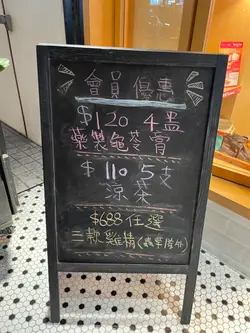 會員優惠
$120 4盅
藥製龜苓膏
$110 5支
涼茶
$688 任選
三款雞精(蟲草除外)